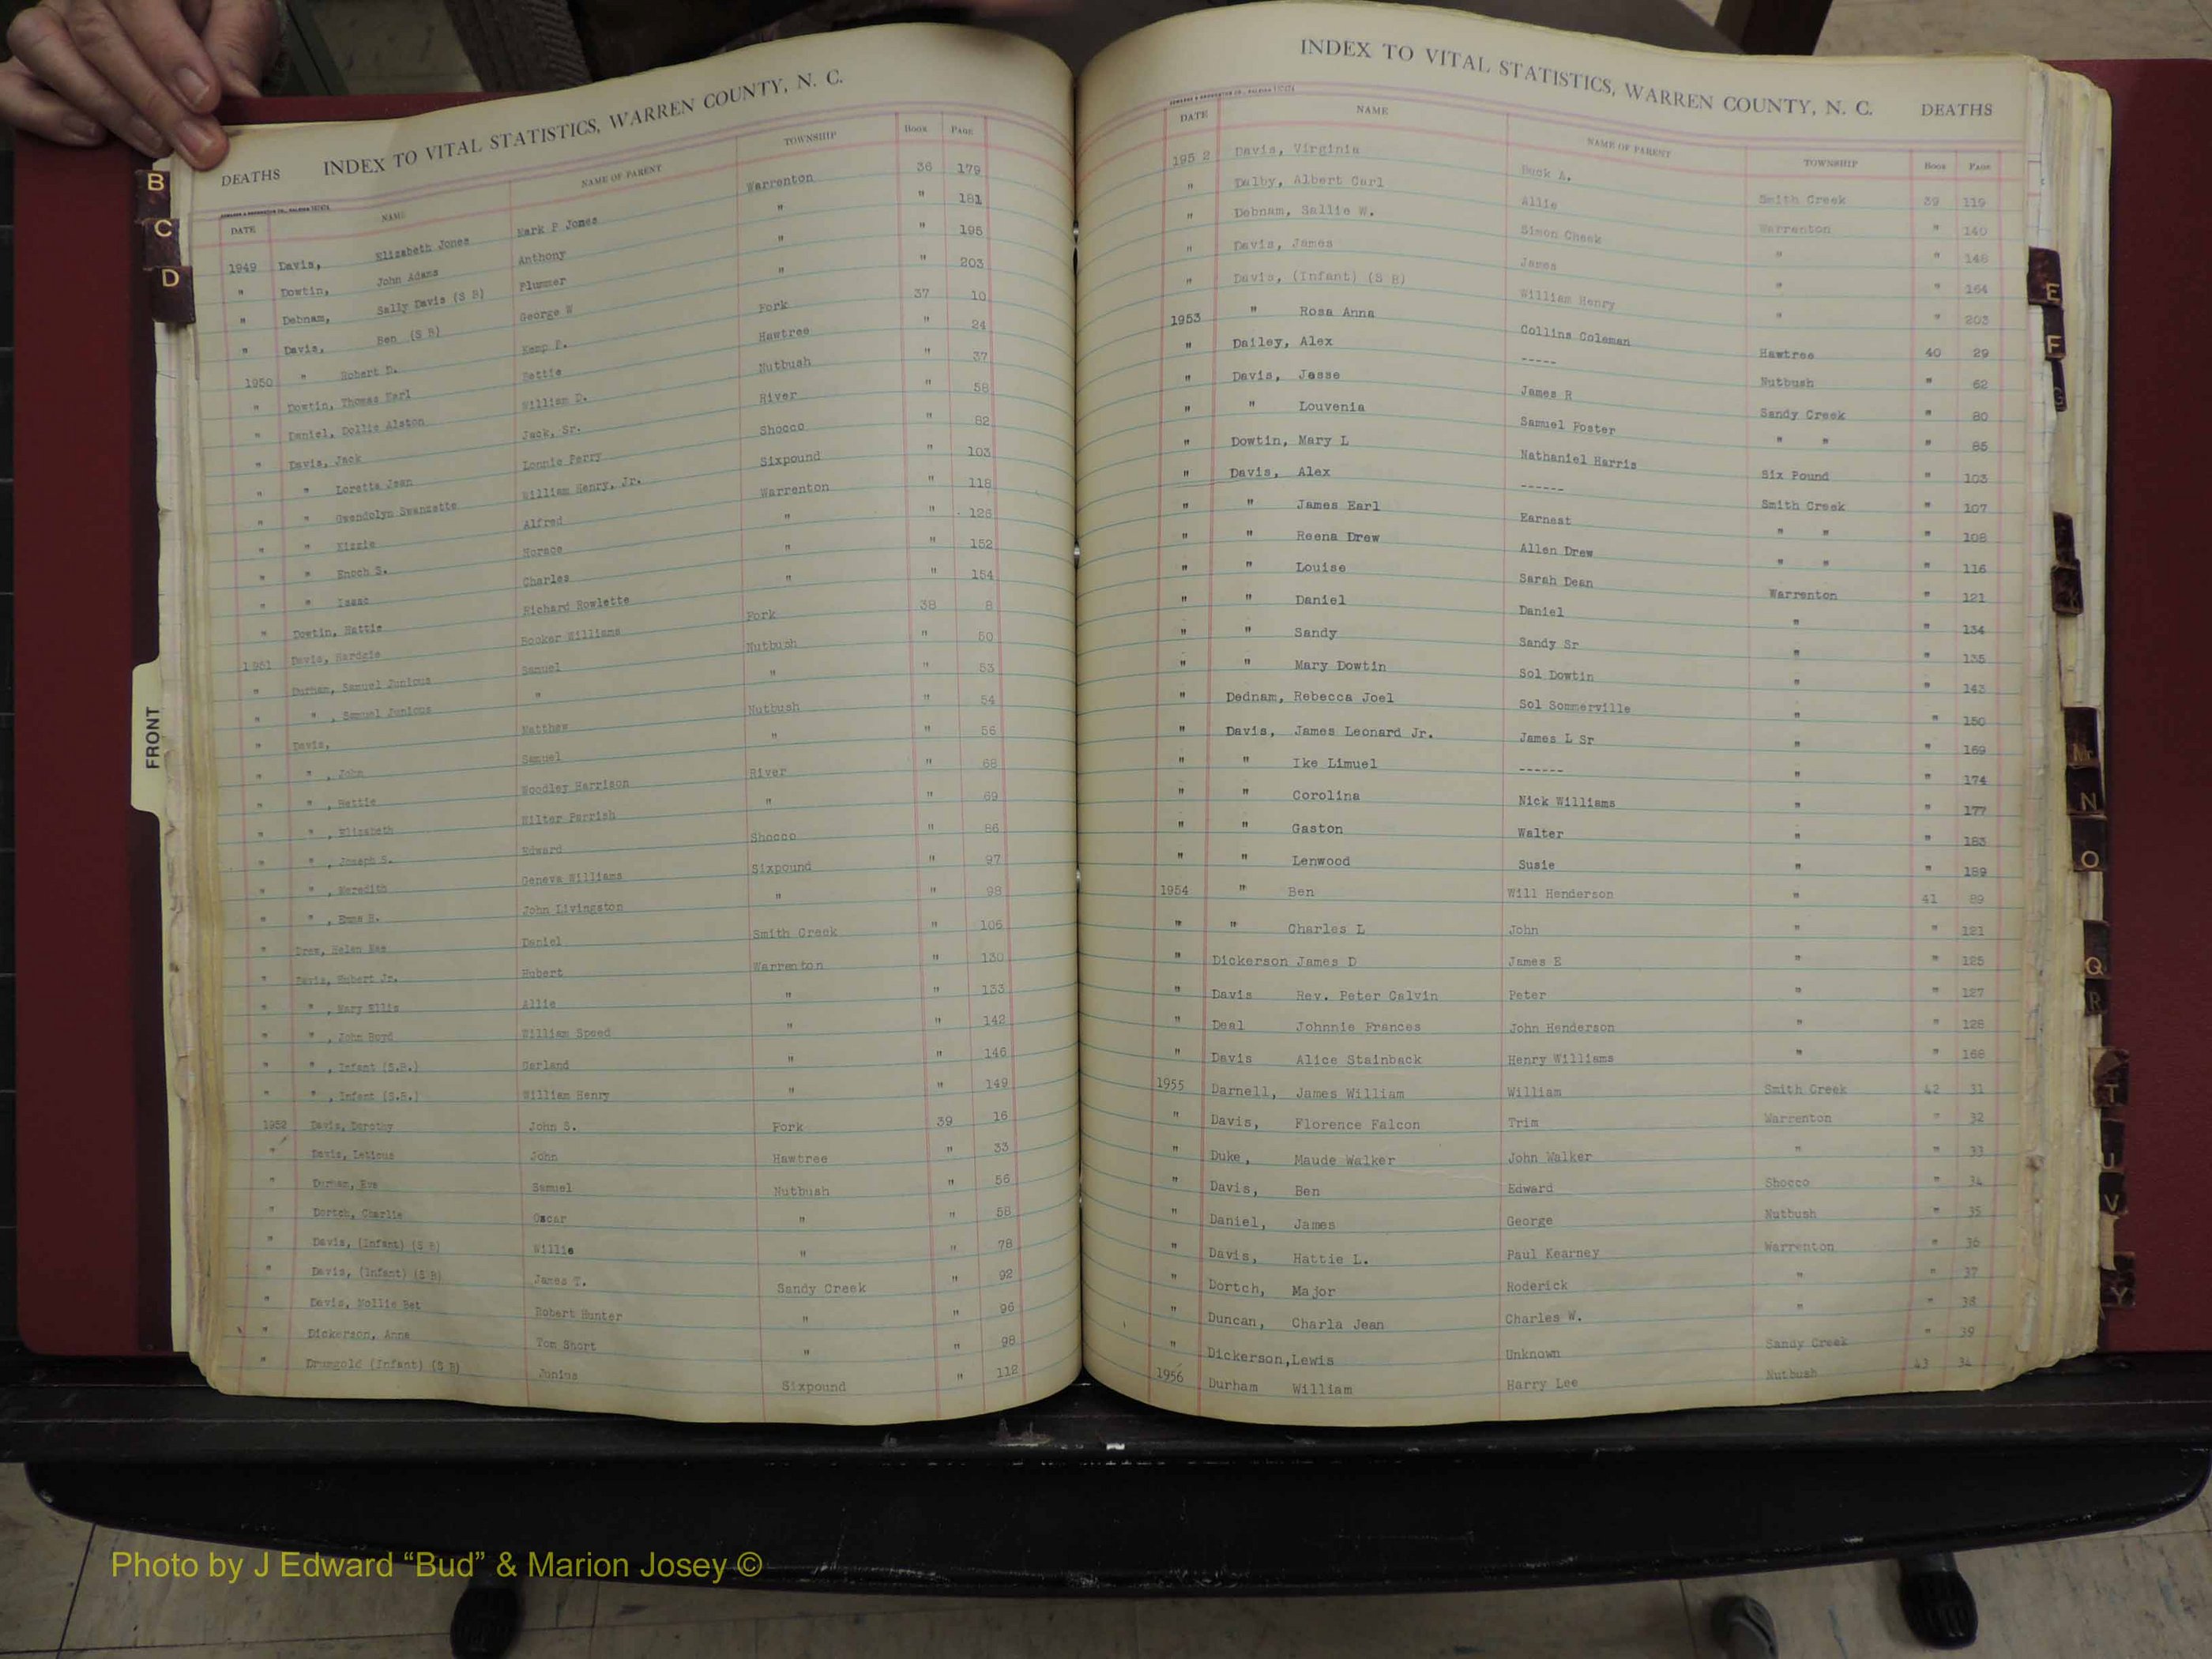 DEATHS INDEX TO VITAL STATISTICS, WARREN COUNTY, N. C.
DATE NAME NAME OF PARENT TOWNSHIP BOOK PAGE
1949 Davis, Elizabeth Jones Mark P Jones Warrenton 36 179
" Dowtin, John Adams Anthony " " 181
" Debnam, Sally Davis (S B) Plummer " " 195
" Davis, Ben (S B) George W " " 203
1950 " Robert D. Kemp P. Fork 37 10
" Dowtin, Thomas Earl Bettie Hawtree " 24
" Daniel, Dollie Alston William D. Nutbush " 37
" Davis, Jack Jack, Sr. River " 58
" " Loretta Jean Lonnie Perry Shocco " 82
" " Gwendolyn Swanzette William Henry, Jr. Sixpound " 103
" " Kizzie Alfred Warrenton " 118
" " Enoch S. Horace " " 126
" " Isaac Charles " " 152
" Dowtin, Hattie Richard Rowlette " " 154
1951 Davis, Hardgie Booker Williams Fork 38 8
" Durham, Samuel Junious Samuel Nutbush " 50
" " , Samuel Junious " " " 53
" Davis, Matthew Nutbush " 54
" " , John Samuel " " 56
" " , Bettie Woodley Harrison River " 68
" " , Elizabeth Wilter Parrish " " 69
" " , Joseph S. Edward Shocco " 86
" " , Meredith Geneva Williams Sixpound " 97
" " , Emma R. John Livingston " " 98
" Drew, Helen Mae Daniel Smith Creek " 105
" Davis, Hubert Jr. Hubert Warrenton " 130
" " , Mary Ellis Allie " " 133
" " , John Boyd William Speed " " 142
" " , Infant (S.B.) Garland " " 146
" " , Infant (S.B.) William Henry " " 149
1952 Davis, Dorothy John S. Fork 39 16
" Davis, Laticus John Hawtree " 33
" Durham, Eva Samuel Nutbush " 56
" Dortch, Charlie Oscar " " 58
" Davis, (Infant) (S B) Willie " " 78
" Davis, (Infant) (S B) James T. Sandy Creek " 92
" Davis, Nollie Bet Robert Hunter " " 96
" Dickerson, Anna Tom Short " " 98
" Drumgold (Infant) (S B) Junius Sixpound " 112
INDEX TO VITAL STATISTICS, WARREN COUNTY, N. C. DEATHS
DATE NAME NAME OF PARENT TOWNSHIP BOOK PAGE
1952 Davis, Virginia Buck A. Smith Creek 39 119
" Dalby, Albert Carl Allie Warrenton " 140
" Debnam, Sallie W. Simon Cheek " " 146
" Davis, James James " " 164
" Davis, (Infant) (S B) William Henry " " 203
1953 " Rosa Anna Collins Coleman Hawtree 40 29
" Dailey, Alex ----- Nutbush " 62
" Davis, Jesse James R Sandy Creek " 80
" " Louvenia Samuel Foster " " " 85
" Dowtin, Mary L Nathaniel Harris Six Pound " 103
" Davis, Alex ------ Smith Creek " 107
" " James Earl Earnest " " " 108
" " Reena Drew Allen Drew " " " 116
" " Louise Sarah Dean Warrenton " 121
" " Daniel Daniel " " 134
" " Sandy Sandy Sr " " 135
" " Mary Dowtin Sol Dowtin " " 143
" Dednam, Rebecca Joel Sol Sommerville " " 150
" Davis, James Leonard Jr. James L Sr " " 169
" " Ike Limuel ------ " " 174
" " Corolina Nick Williams " " 177
" " Gaston Walter " " 183
" " Lenwood Susie " " 189
1954 " Ben Will Henderson " 41 89
" " Charles L John " " 121
" Dickerson James D James E " " 125
" Davis Rev. Peter Calvin Peter " " 127
" Deal Johnnie Frances John Henderson " " 128
" Davis Alice Stainback Henry Williams " " 168
1955 Darnell, James William William Smith Creek 42 31
" Davis, Florence Falcon Trim Warrenton " 32
" Duke, Maude Walker John Walker " " 33
" Davis, Ben Edward Shocco " 34
" Daniel, James George Nutbush " 35
" Davis, Hattie L. Paul Kearney Warrenton " 36
" Dortch, Major Roderick " " 37
" Duncan, Charla Jean Charles W. " " 38
" Dickerson, Lewis Unknown Sandy Creek " 39
1956 Durham William Harry Lee Nutbush 43 34
B
C
D
FRONT
E
F
G
K
Mc
N
O
Q
R
T
U
V
Y
Photo by J Edward “Bud” & Marion Josey ©